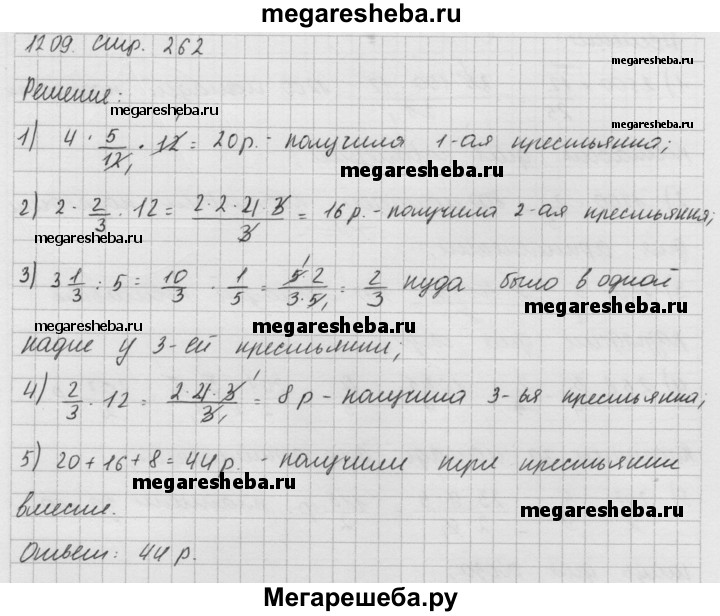 megaresheba.ru
1209. стр. 262
megaresheba.ru
Решение:
megaresheba.ru
1) 4 · 5/12 · 12 = 20 р. - получила 1-ая крестьянка;
megaresheba.ru
2) 2 · 2/3 · 12 = 2·2·4·3/3 = 16 р. - получила 2-ая крестьянка;
megaresheba.ru
3) 3 1/3 : 5 = 10/3 · 1/5 = 5·2/3·5 = 2/3 пуда было в одной
megaresheba.ru
megaresheba.ru megaresheba.ru
кадке у 3-ей крестьянки;
4) 2/3 · 12 = 2·4·3/3 = 8 р - получила 3-ья крестьянка;
5) 20 + 16 + 8 = 44 р. - получили три крестьянки
megaresheba.ru
вместе.
megaresheba.ru
Ответ: 44 р.
Мегарешеба.ру